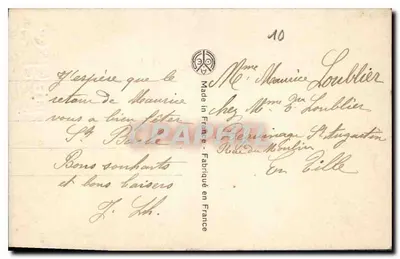 10
J'espère que le
retour de Maurice
vous a bien fêter
Ste Barbe
Bons souhaits
et bons baisers
J. Lh.
Made in France - Fabriqué en France
Mme Maurice Loublier
chez Mme Loublier
St Augustin
Rue du Moulin
En Ville